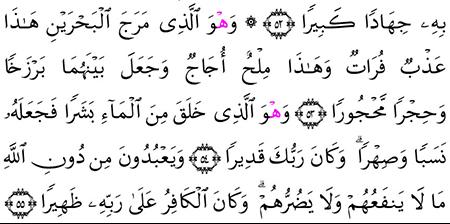 بِهِۦ جِهَادًا كَبِيرًا ۝٥٢ ۞ وَهْوَ ٱلَّذِى مَرَجَ ٱلْبَحْرَيْنِ هَـٰذَا
عَذْبٌ فُرَاتٌ وَهَـٰذَا مِلْحٌ أُجَاجٌ وَجَعَلَ بَيْنَهُمَا بَرْزَخًا
وَحِجْرًا مَّحْجُورًا ۝٥٣ وَهْوَ ٱلَّذِى خَلَقَ مِنَ ٱلْمَآءِ بَشَرًا فَجَعَلَهُۥ
نَسَبًا وَصِهْرًا ۗ وَكَانَ رَبُّكَ قَدِيرًا ۝٥٤ وَيَعْبُدُونَ مِن دُونِ ٱللَّهِ
مَا لَا يَنفَعُهُمْ وَلَا يَضُرُّهُمْ ۗ وَكَانَ ٱلْكَافِرُ عَلَىٰ رَبِّهِۦ ظَهِيرًا ۝٥٥